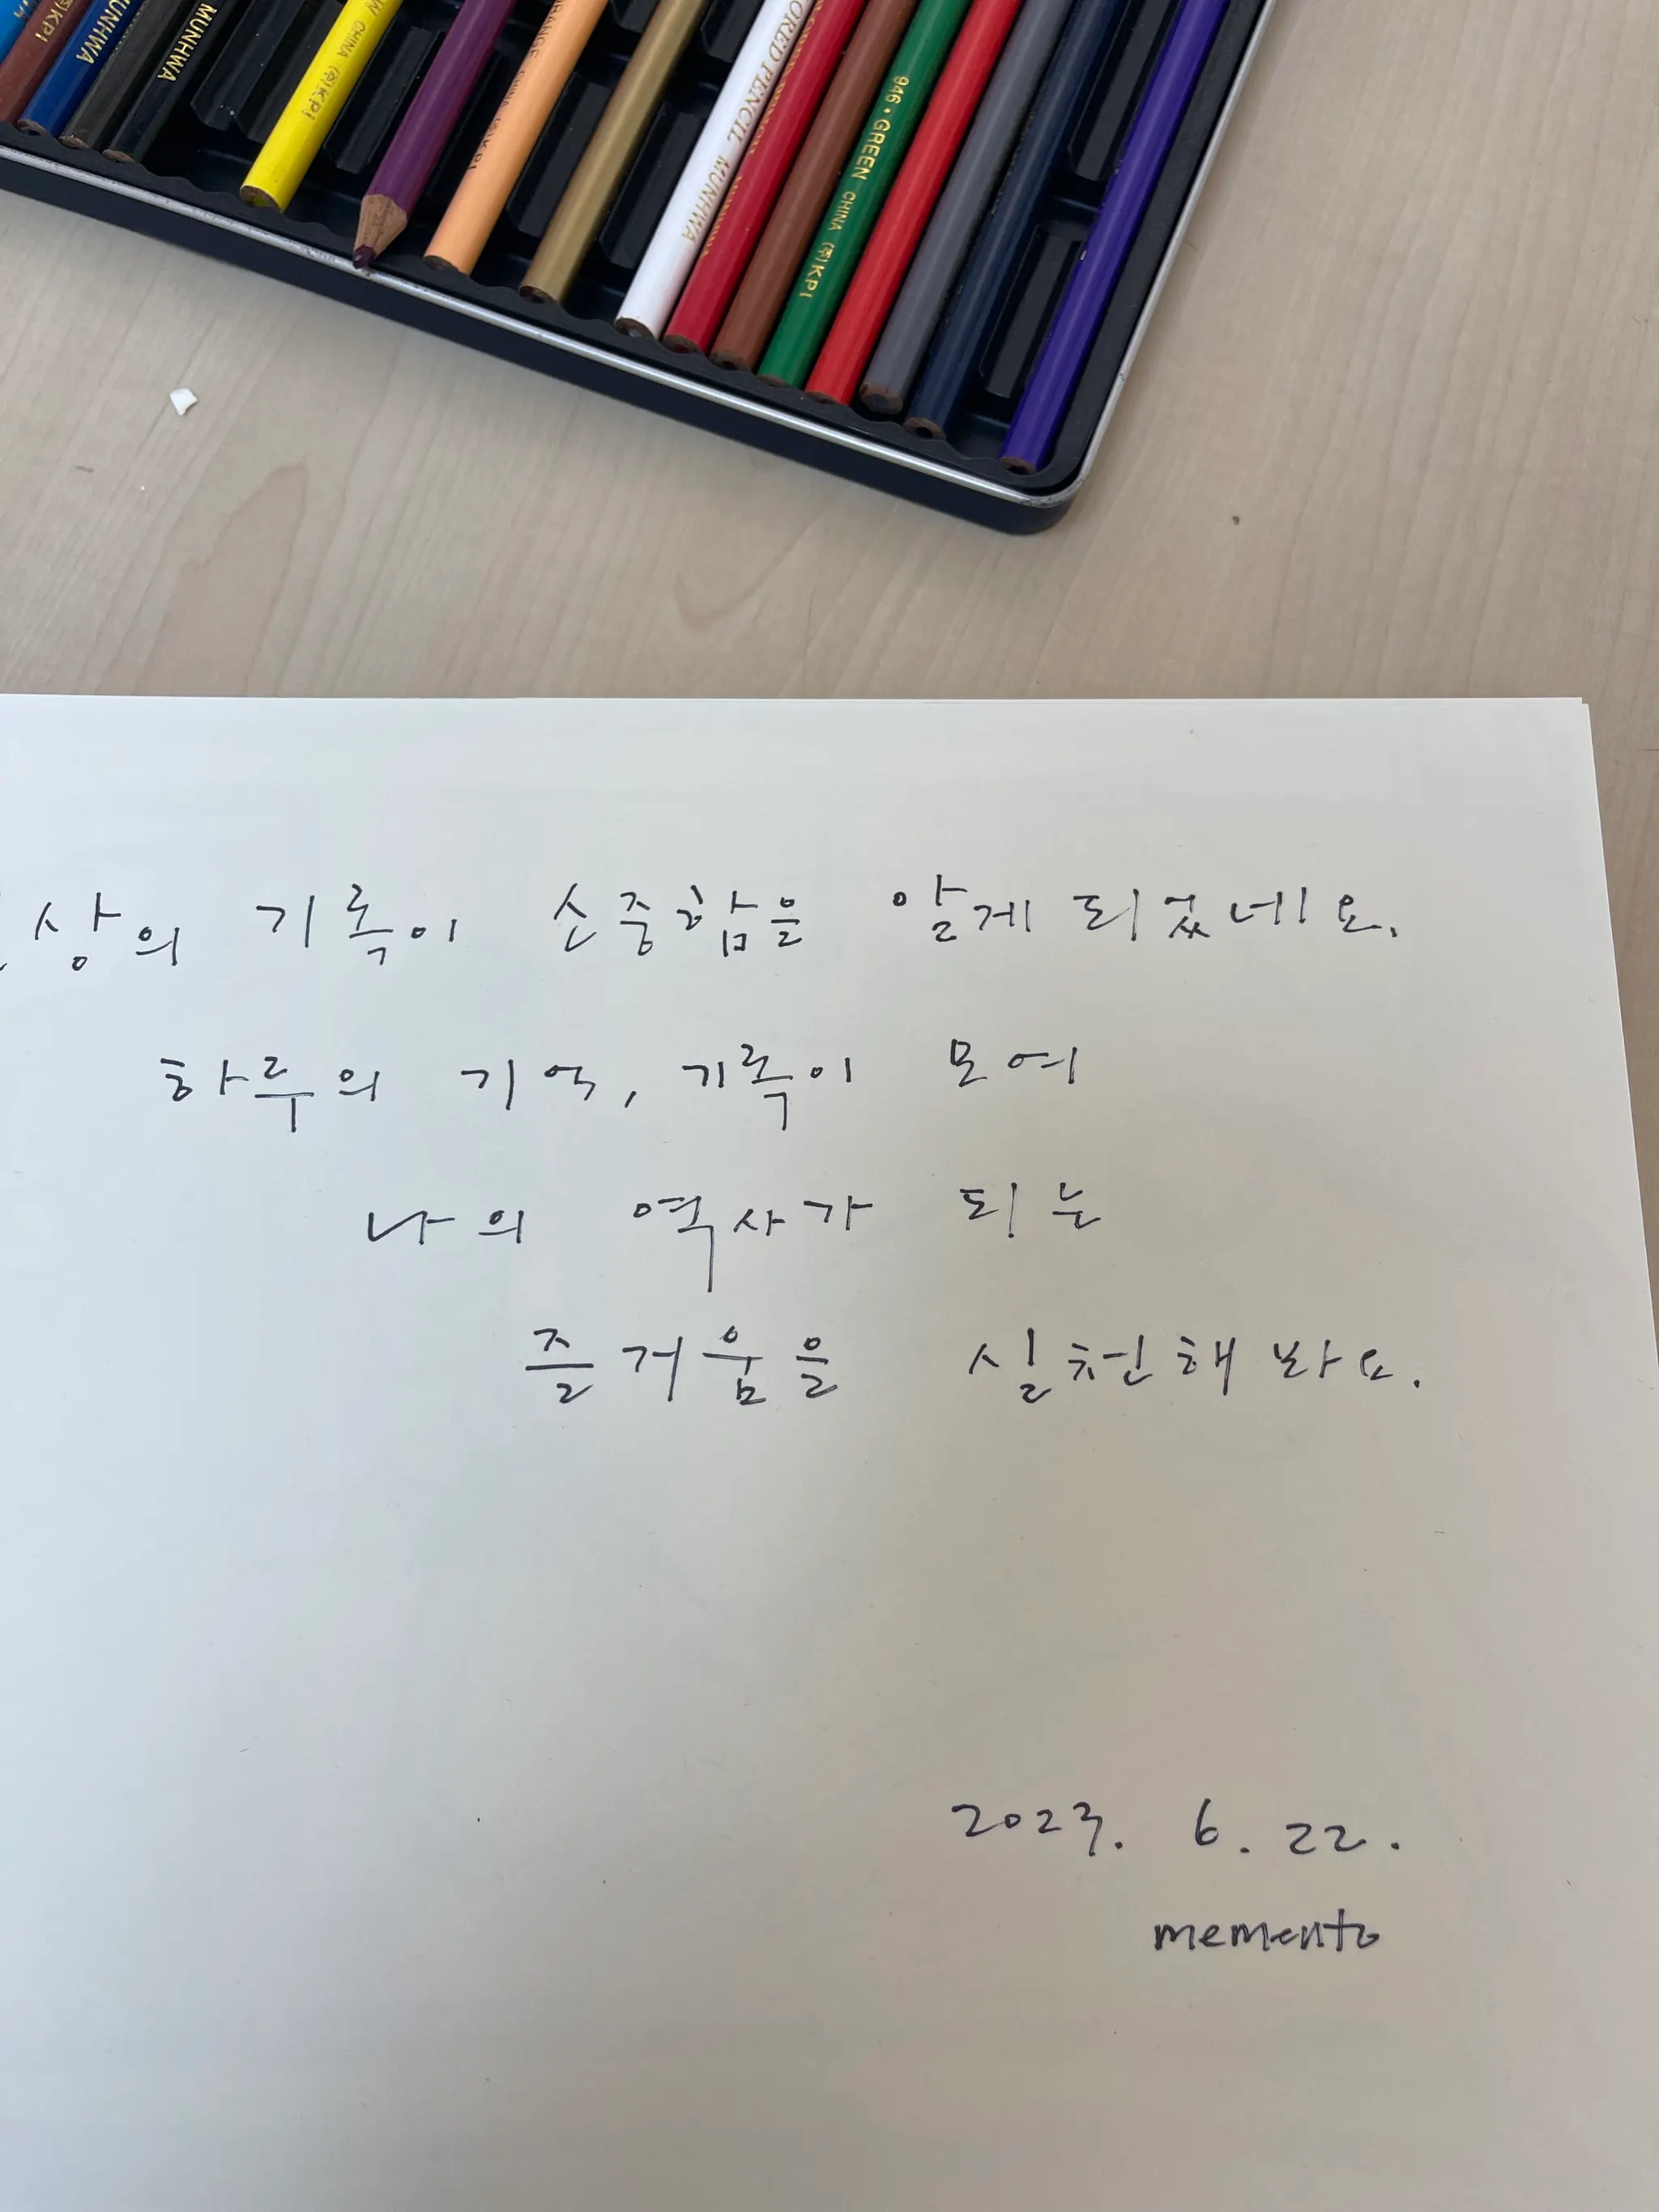 MUNHWA
MUNHWA
CHINA (주)KPI
COLORED PENCIL MUNHWA
946 • GREEN CHINA (주)KPI
상의 기록이 신중함을 알게 되었네요.
하루의 기억, 기록이 모여
나의 역사가 되는
즐거움을 실천해봐요.
2023. 6. 22.
memento